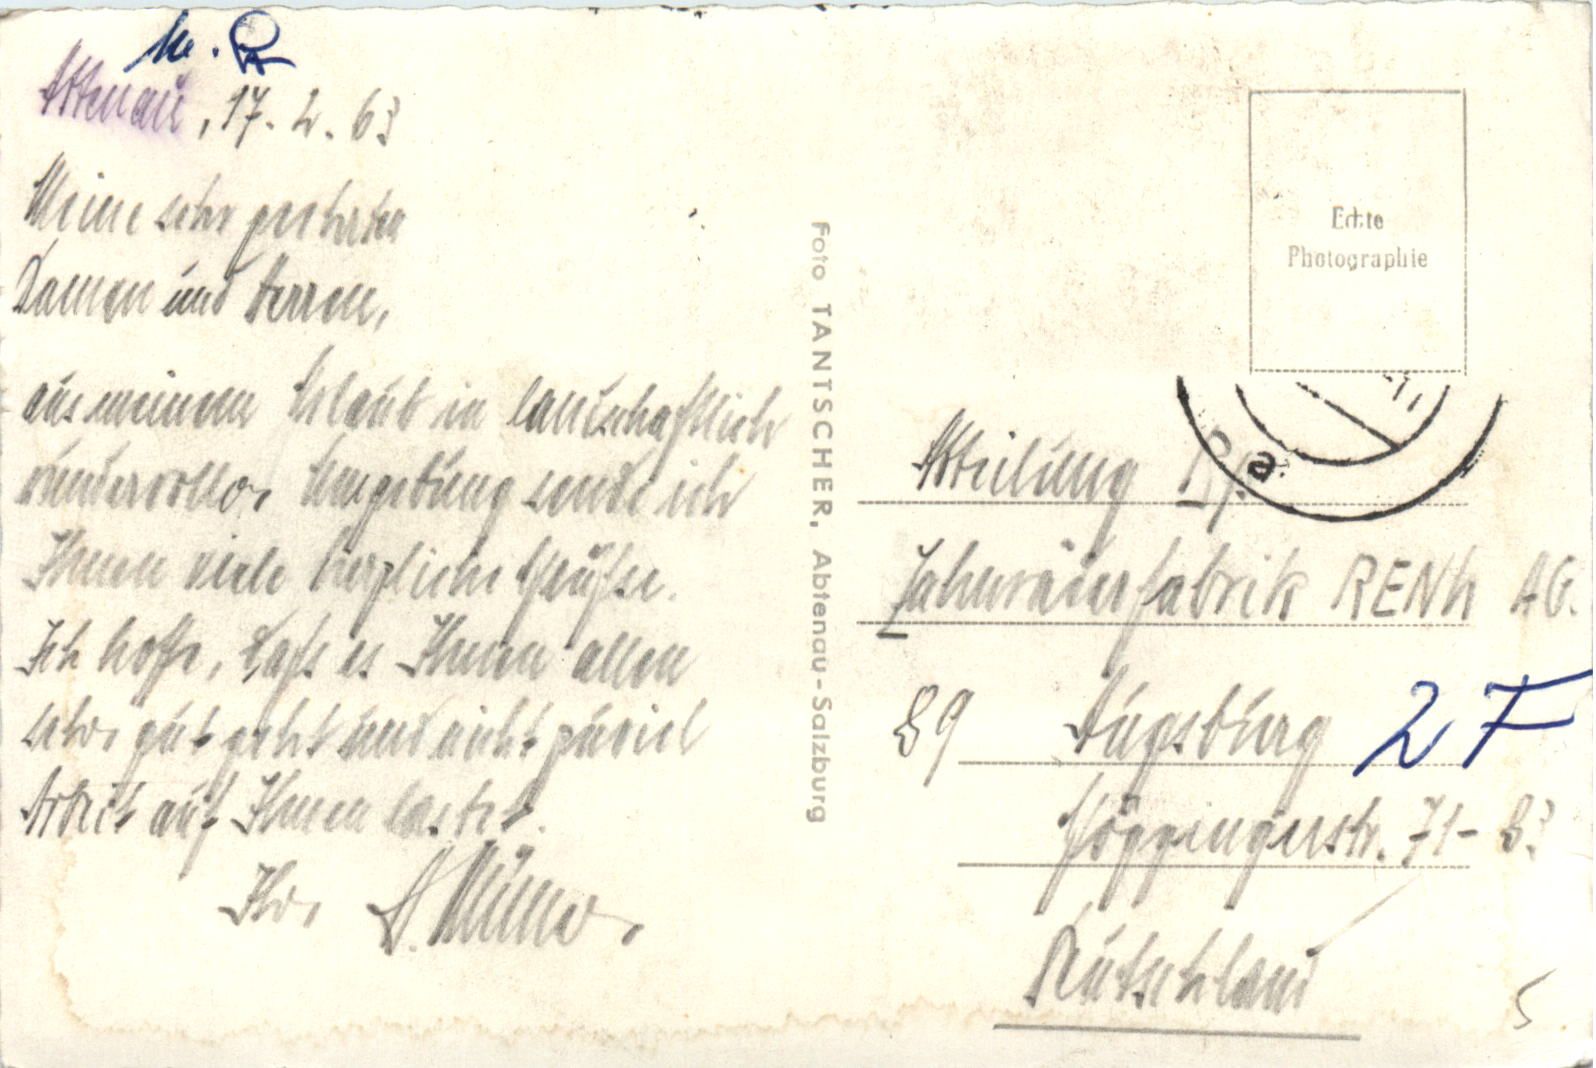 Abtenau, 17. 2. 63
Meine sehr geehrten
Damen und Herren,
aus meinem Urlaub in landschaftlich
wundervoller Umgebung sende ich
Ihnen viele herzliche Grüße.
Ich hoffe, daß es Ihnen allen
sehr gut geht und nicht zuviel
Arbeit auf Ihnen lastet.
Ihr
Foto TANTSCHER, Abtenau-Salzburg
Echte
Photographie
a
Abteilung
Zahnräderfabrik RENK AG.
89 Augsburg 2 F
Göggingerstr. 71-83
Deutschland
5